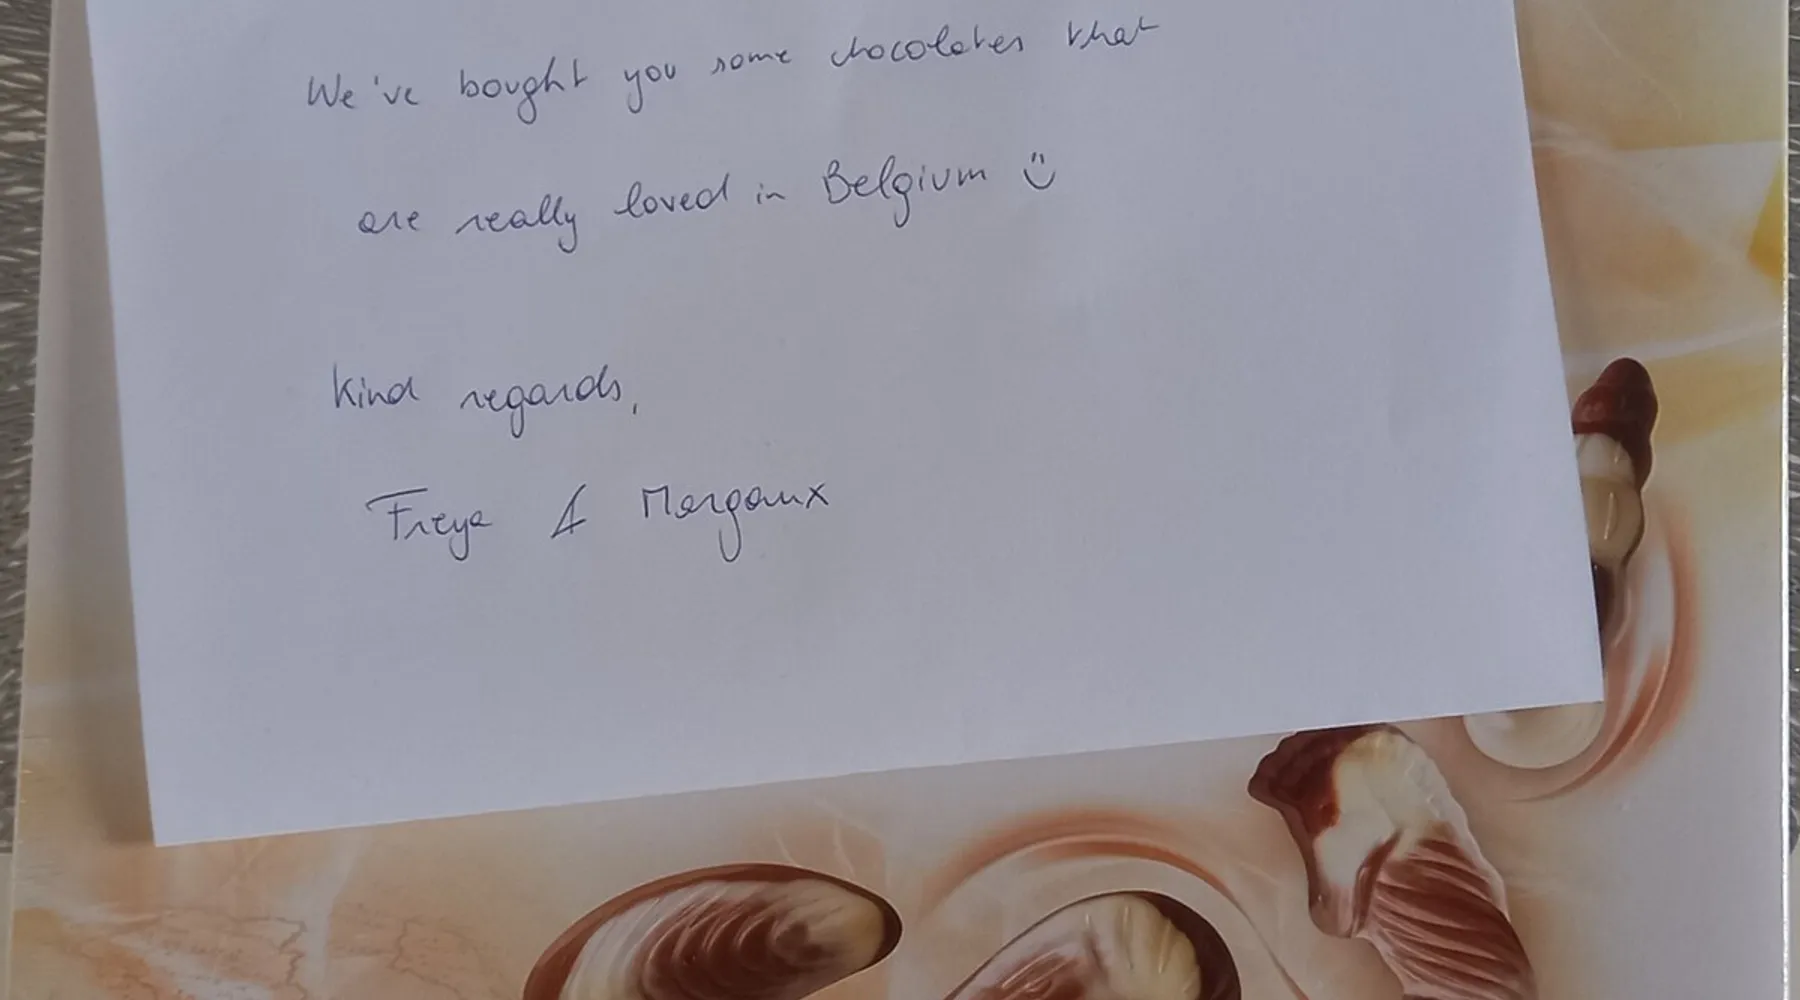 We've bought you some chocolates that
are really loved in Belgium :)
Kind regards,
Freya & Margaux